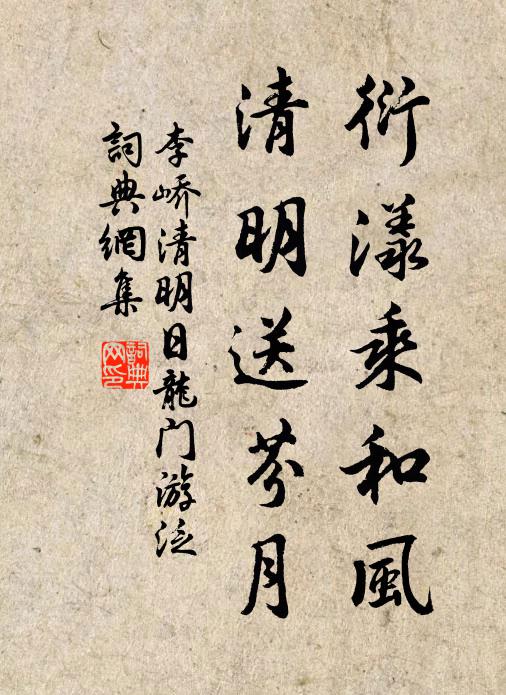 衍漾乘和風
清明送芬月
李嶠清明日龍門游泛
詞典網集
詞典网印